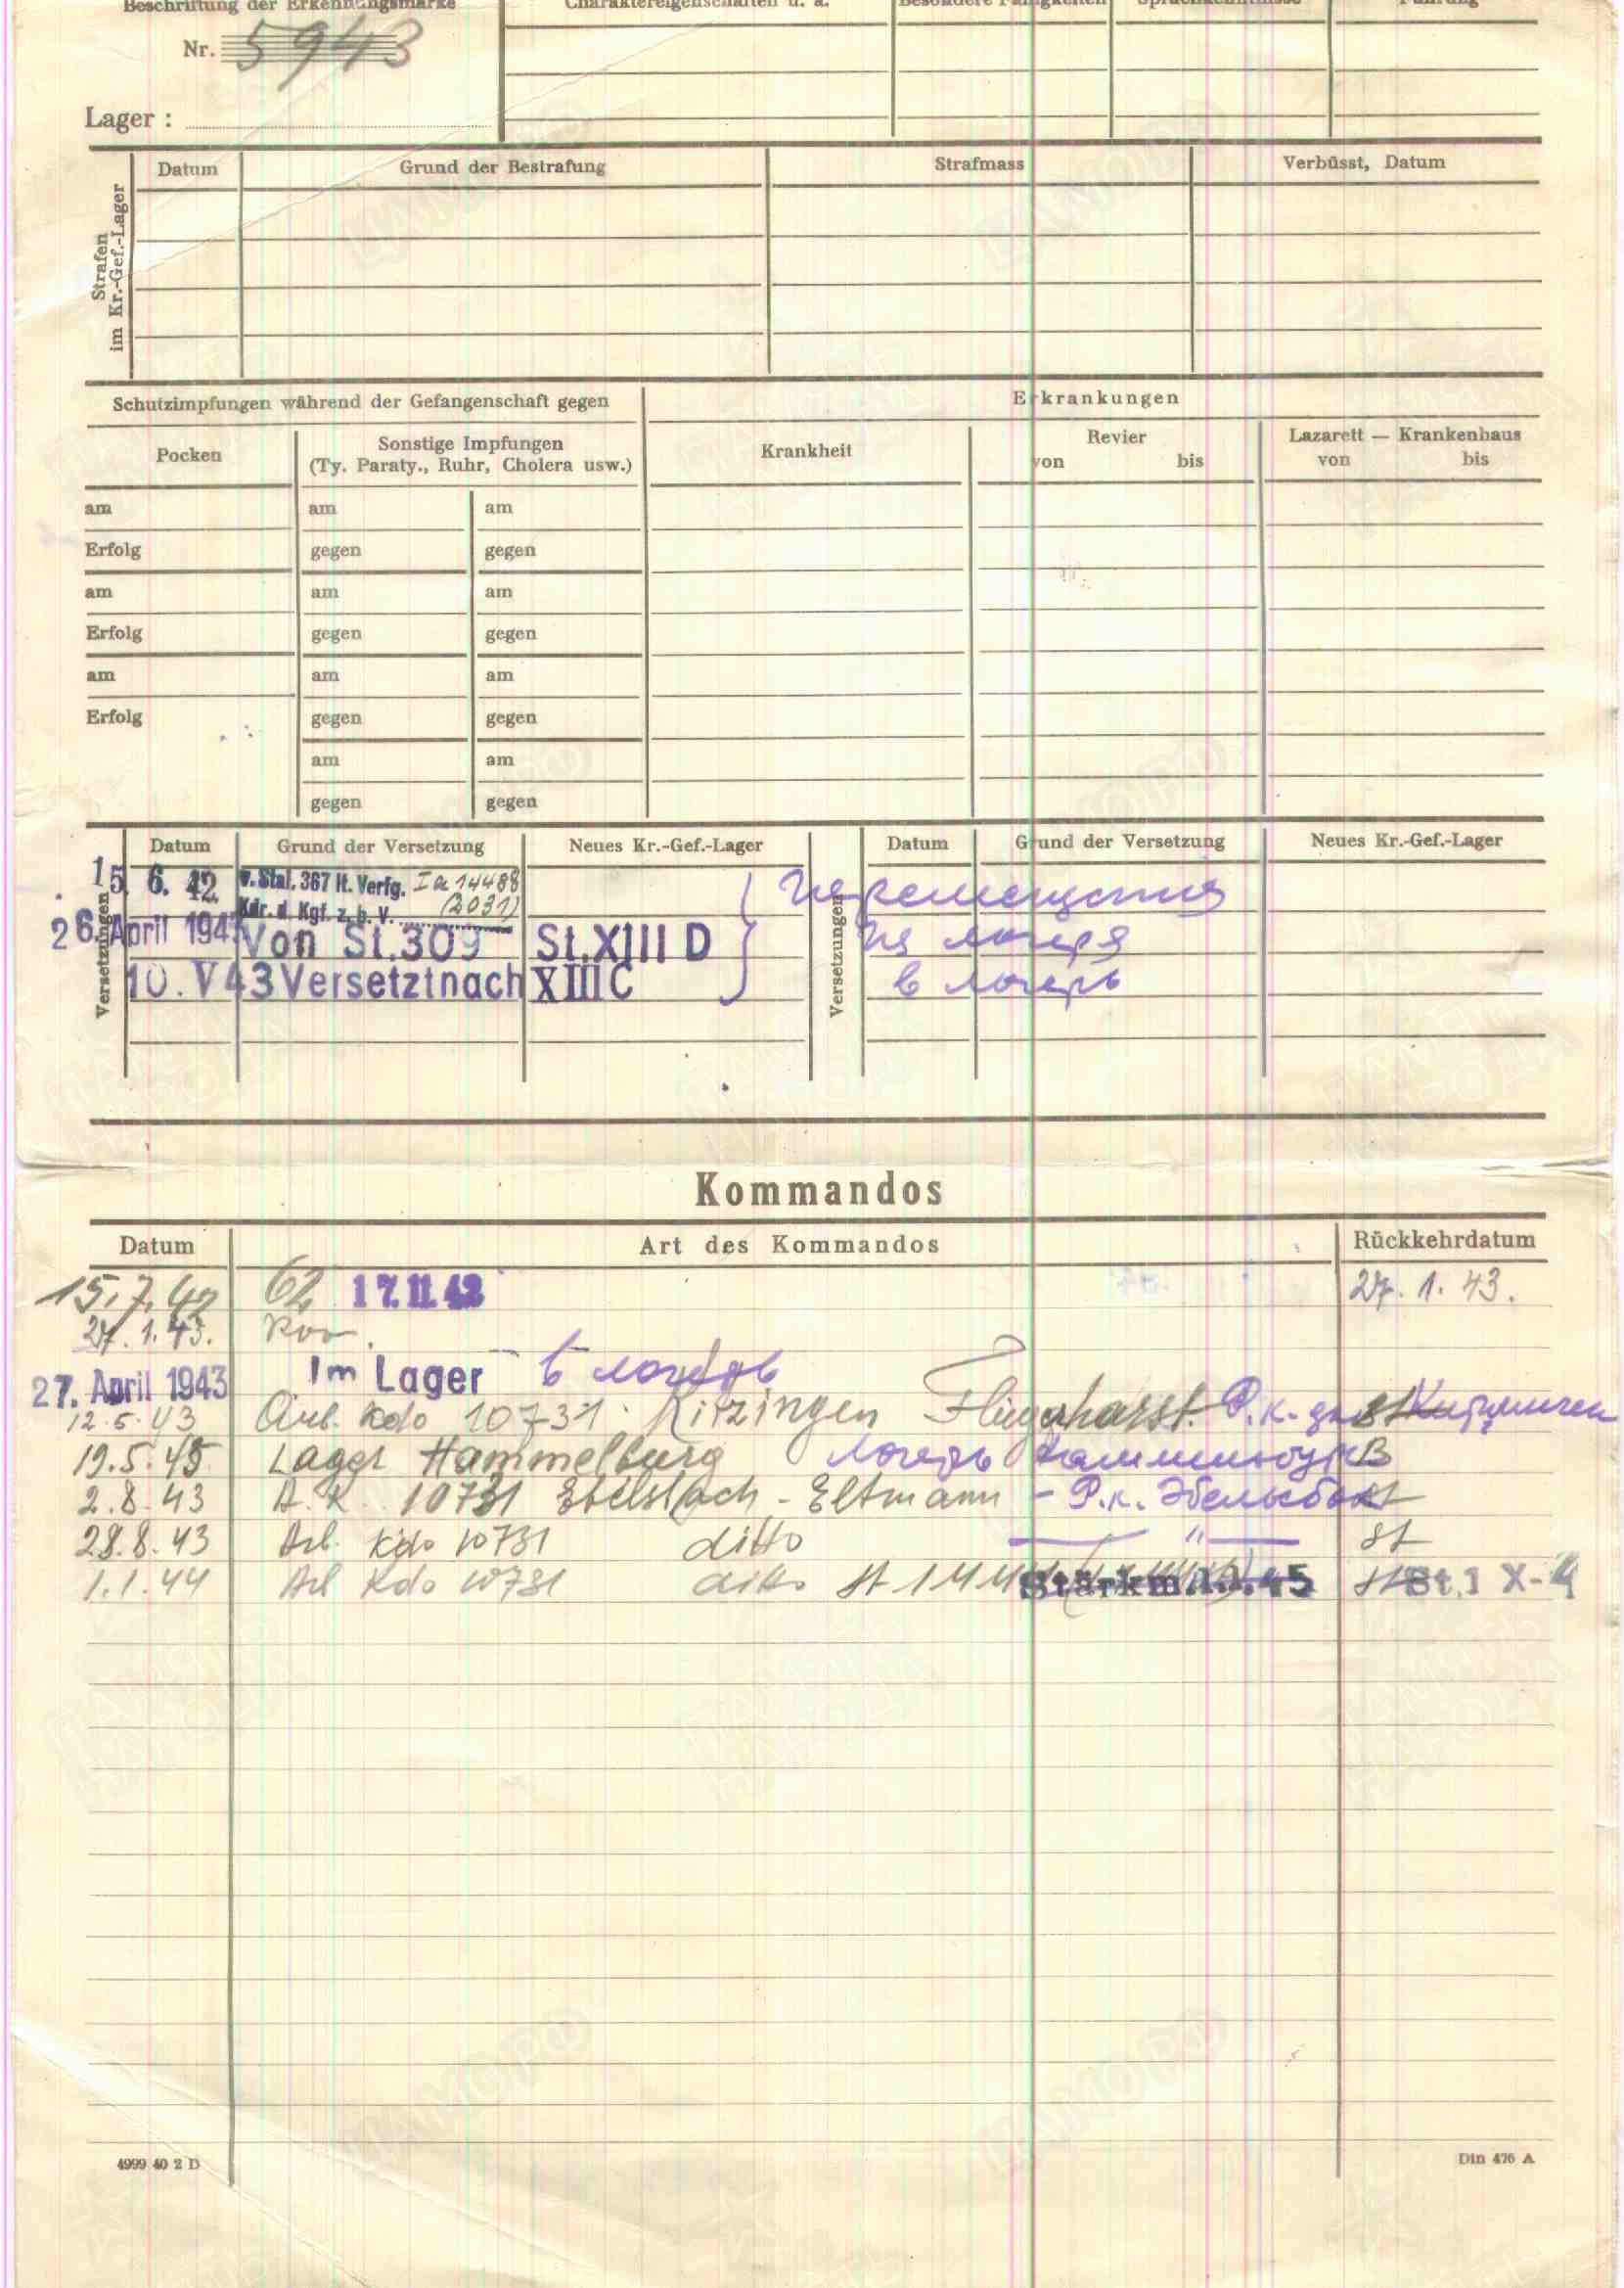 Beschriftung der Erkennungsmarke Charaktereigenschaften u. a. Besondere Fähigkeiten Sprachkenntnisse Führung
Nr. 5943
Lager :
Strafen im Kr.-Gef.-Lager
Datum Grund der Bestrafung Strafmass Verbüsst, Datum
Schutzimpfungen während der Gefangenschaft gegen Erkrankungen
Pocken Sonstige Impfungen Krankheit Revier Lazarett — Krankenhaus
(Ty. Paraty., Ruhr, Cholera usw.) von bis von bis
am am am
Erfolg gegen gegen
am am am
Erfolg gegen gegen
am am am
Erfolg gegen gegen
am am
gegen gegen
Versetzungen Datum Grund der Versetzung Neues Kr.-Gef.-Lager Versetzungen Datum Grund der Versetzung Neues Kr.-Gef.-Lager
15 6. 42 v. Stal. 367 lt. Verfg. Ia 14488 Перемещения
Kdr. d. Kgf. z. b. V. (2031)
26. April 194 Von St.309 St.XIII D из лагеря
10. V 43 Versetzt nach XIII C в лагерь
Kommandos
Datum Art des Kommandos Rückkehrdatum
15.7.42 62 17.11.42 27. 1. 43.
27. 1. 43.
27. April 1943 Im Lager в лагерь
12.5.43 Arb. Kdo 10731 Kitzingen Fliegerhorst. Р.к. St Китцинген
19.5.43 Lager Hammelburg лагерь Хаммельбург B
2.8.43 A. K. 10731 Ebelsbach - Eltmann - Р.к. Эбельсбах St
28.8.43 Arb. Kdo 10731 ditto — " — St
1.1.44 Arb Kdo 10731 ditto St 1 Stärkm.1.1.45 St St.1 X-4
4999 40 2 D Din 476 A